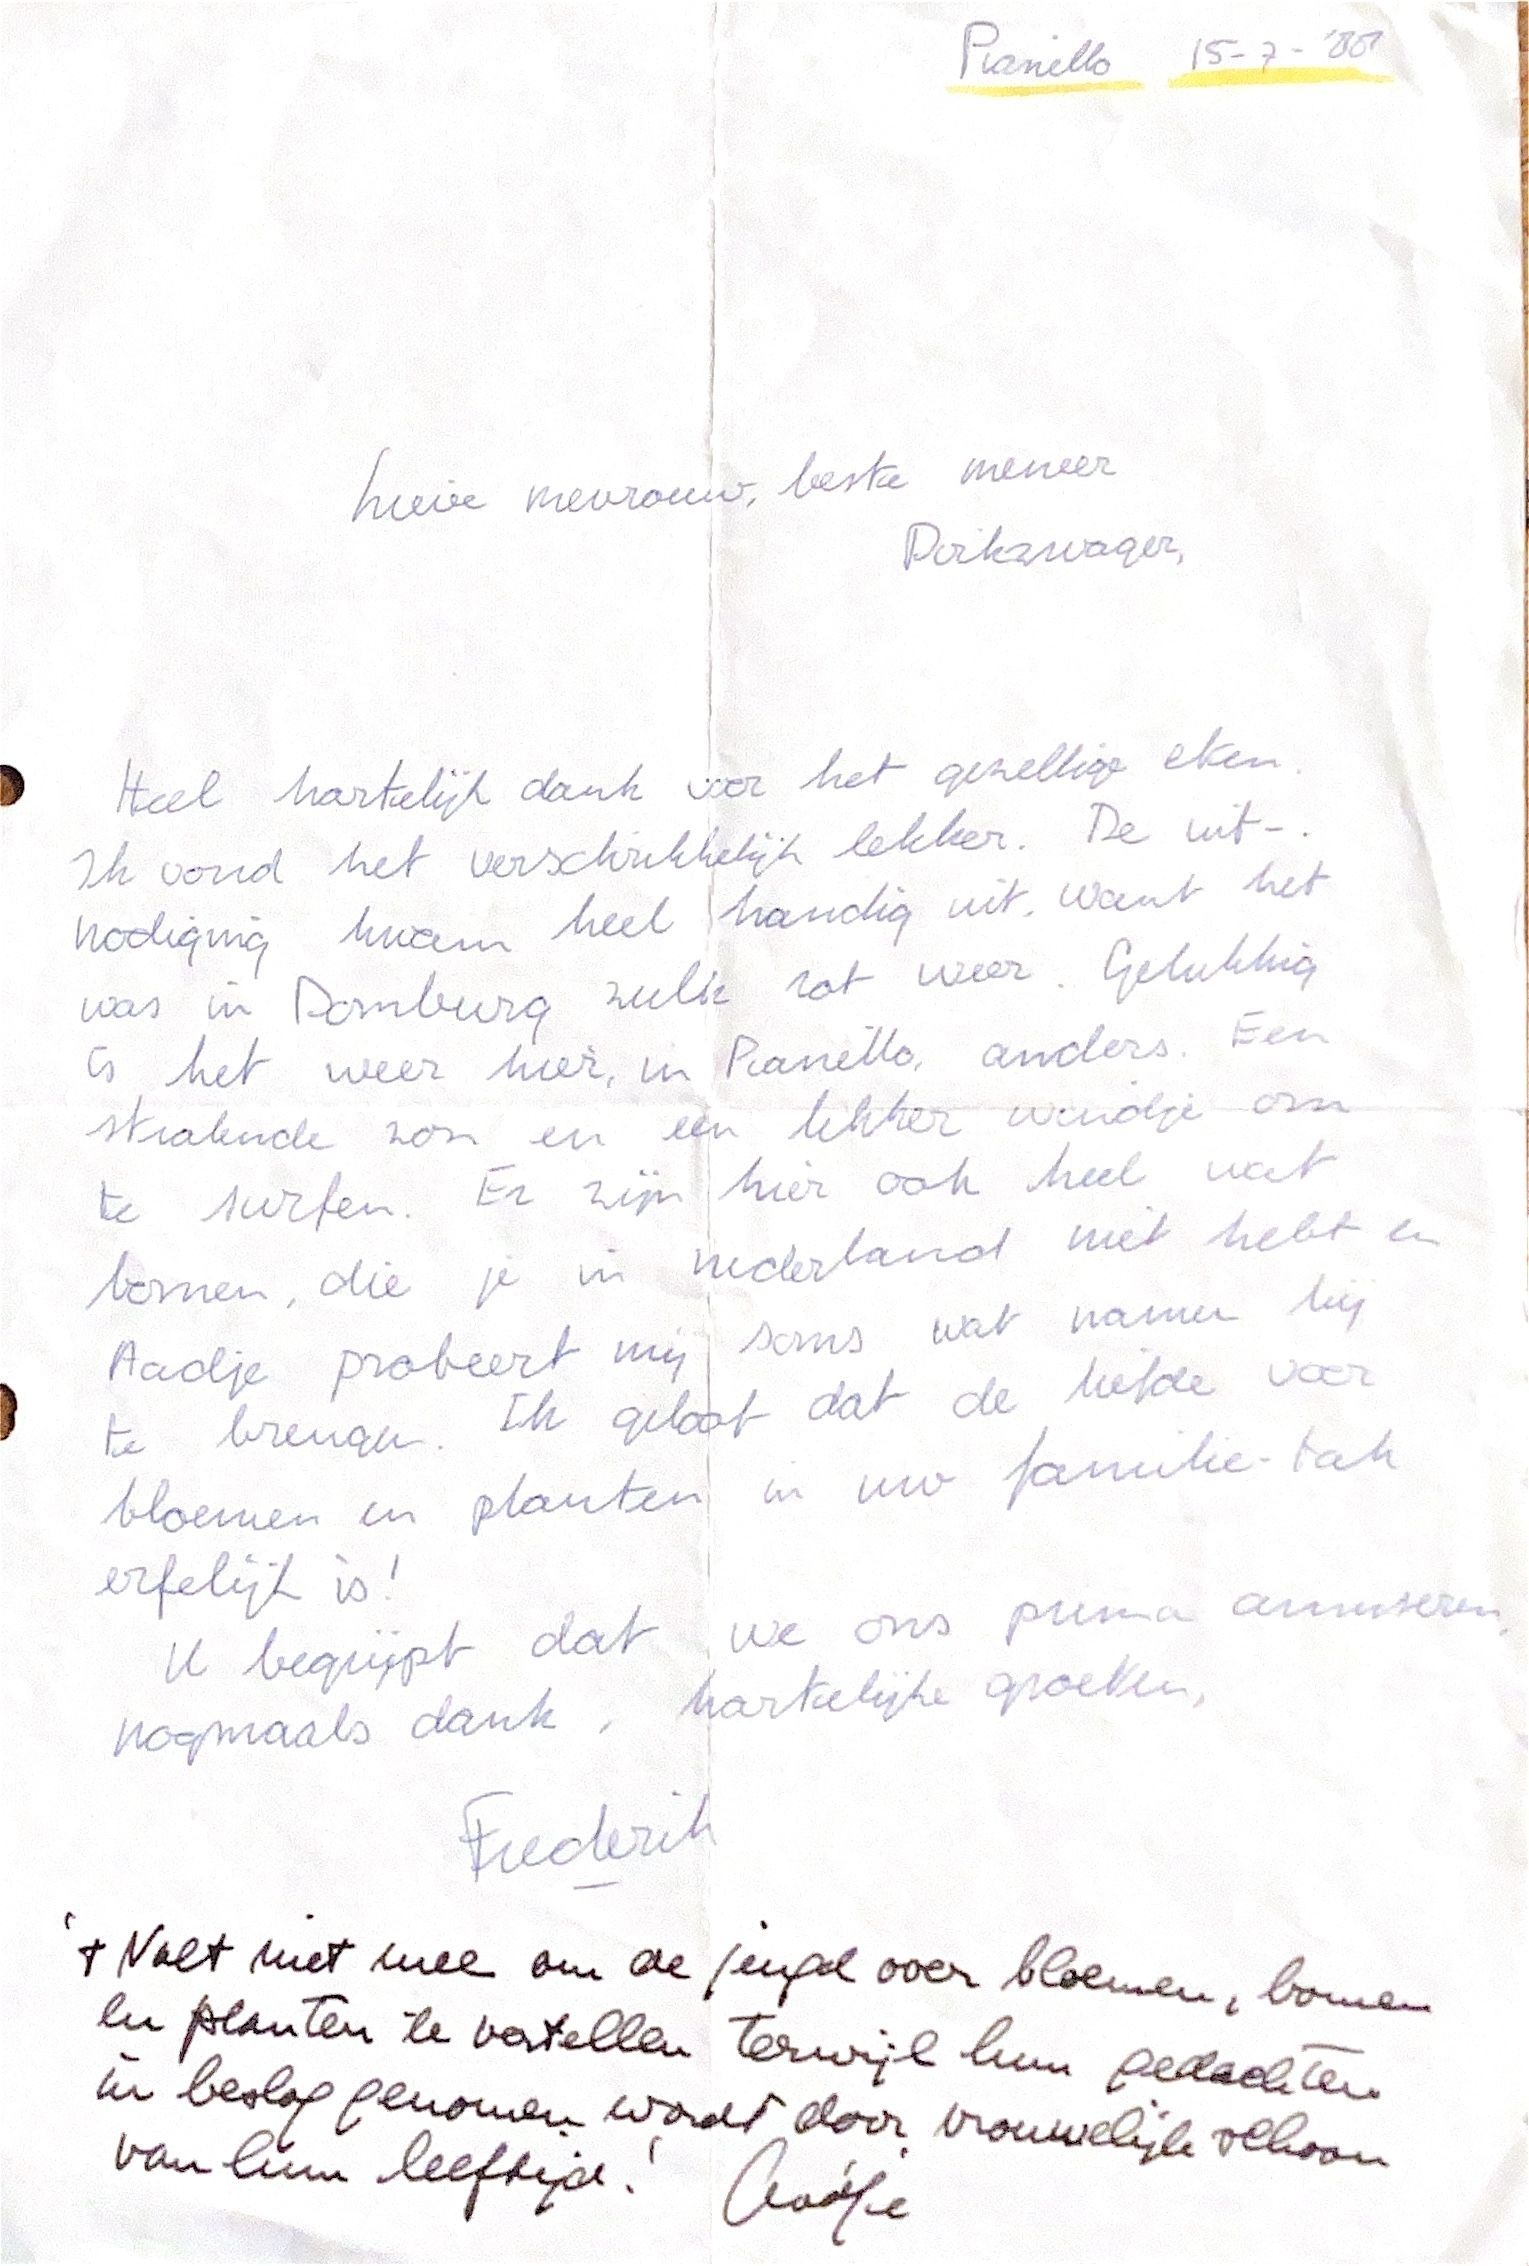 Pianello 15-7-'88
Lieve mevrouw, beste meneer
Dirkzwager,
Heel hartelijk dank voor het gezellige eten.
Ik vond het verschrikkelijk lekker. De uit-
nodiging kwam heel handig uit, want het
was in Domburg zulk rot weer. Gelukkig
is het weer hier, in Pianello, anders. Een
stralende zon en een lekker windje om
te surfen. Er zijn hier ook heel wat
bomen, die je in nederland niet hebt en
Aadje probeert mij soms wat namen bij
te brengen. Ik geloof dat de liefde voor
bloemen en planten in uw familie-tak
erfelijk is!
U begrijpt dat we ons prima amuseren,
nogmaals dank, hartelijke groeten,
Frederik
+ Valt niet mee om de jeugd over bloemen, bomen
en planten te vertellen terwijl hun gedachten
in beslag genomen wordt door vrouwelijk schoon
van hun leeftijd! Aadje